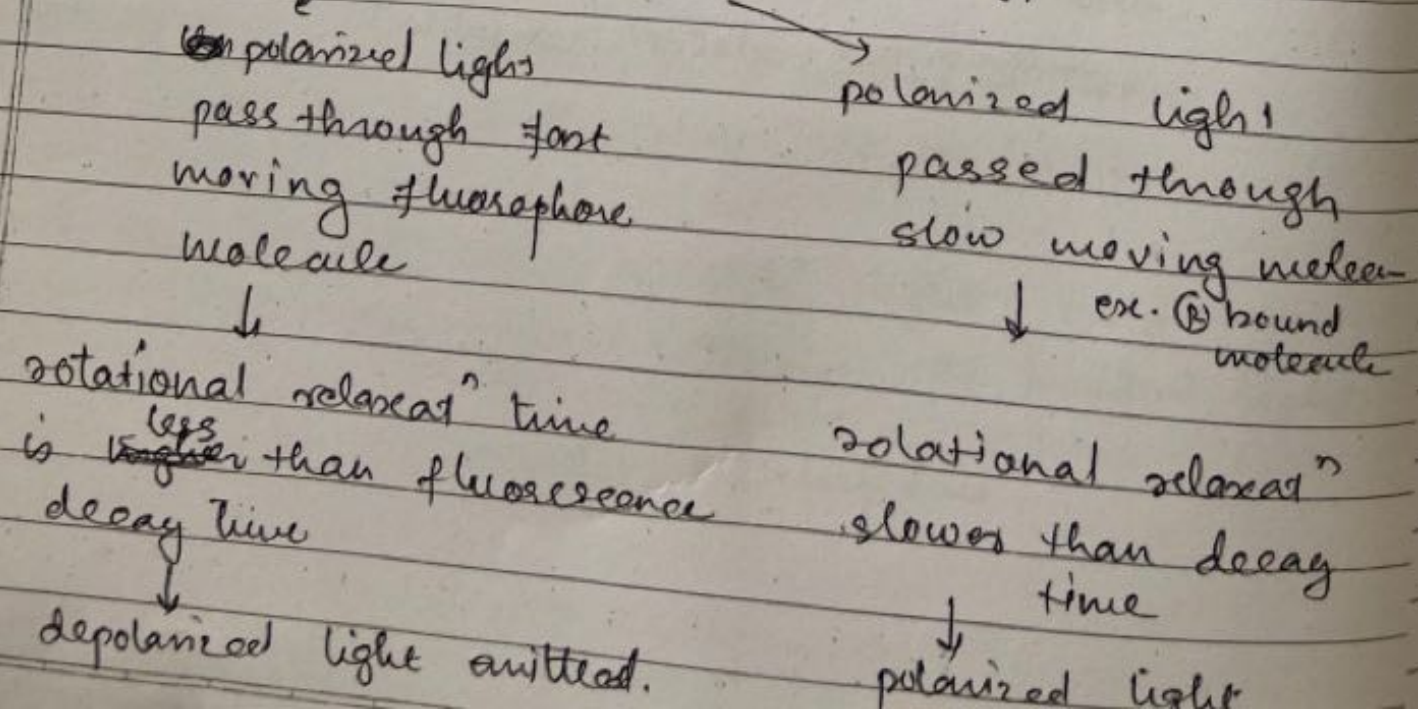 polarized light
pass through fast
moving fluorophore
molecule
↓
rotational relaxatⁿ time
is less than fluorescence
decay time
↓
depolarized light emitted.
polarized light
passed through
slow moving molecu-
↓ ex. Ⓡ bound
molecule
rotational relaxatⁿ
slower than decay
time
↓
polarized light